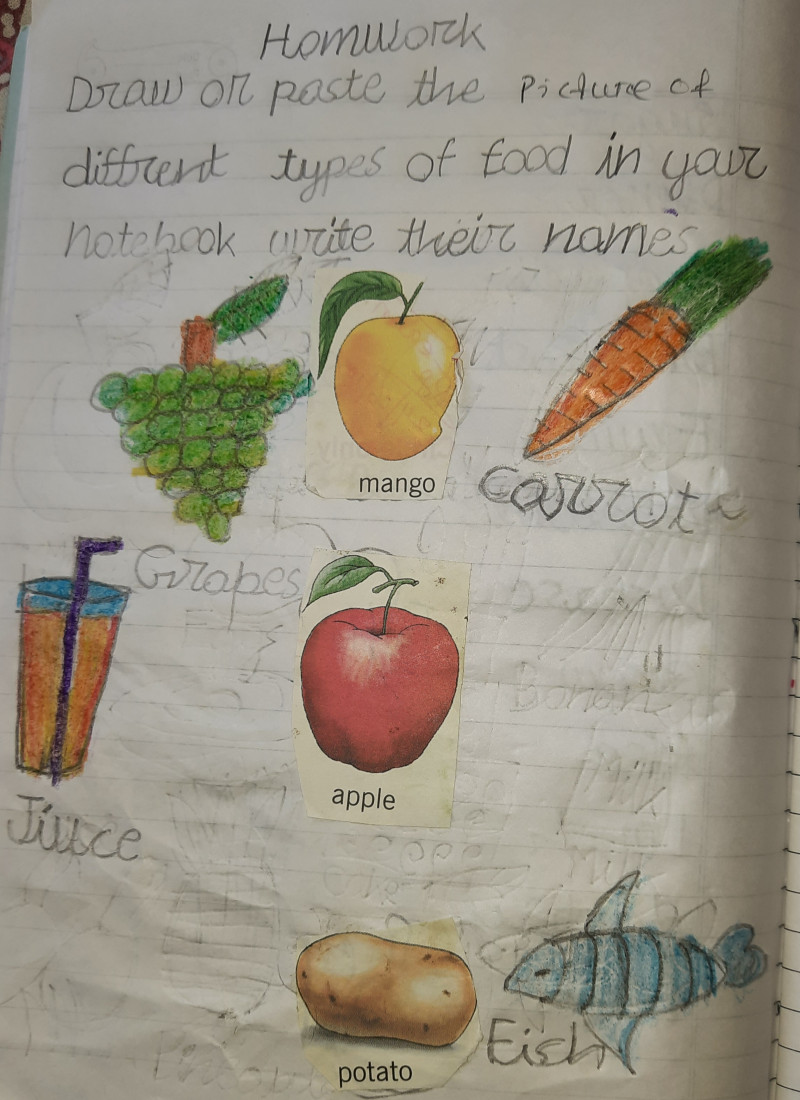 Homwork
Draw or paste the Picture of
diffrent types of food in your
notebook write their names
mango
Carrot
Grapes
apple
Juice
potato
Fish